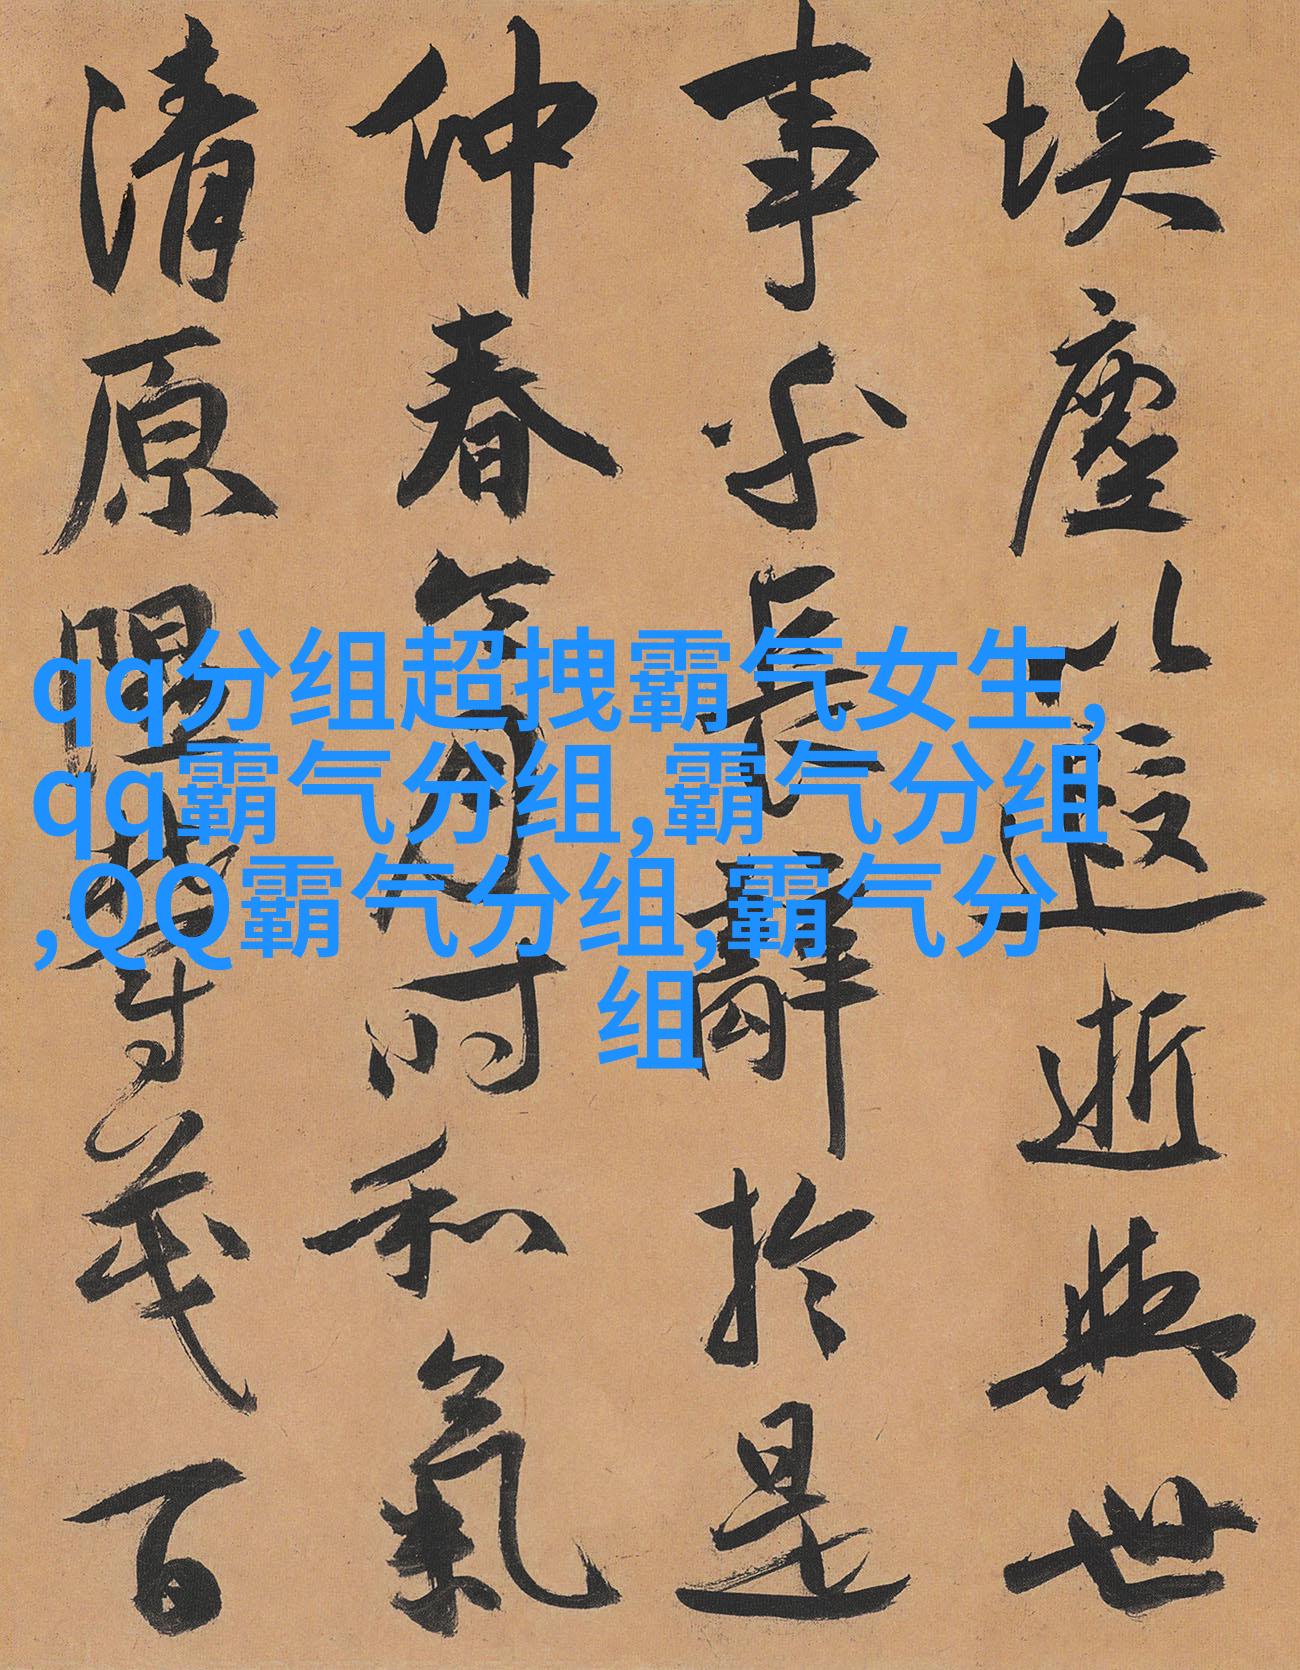 埃塵以遐逝與世
事乎長辭於是
仲春令月時和氣
清原隰鬱茂百
qq分组超拽霸气女生,
qq霸气分组,霸气分组
,QQ霸气分组,霸气分
组